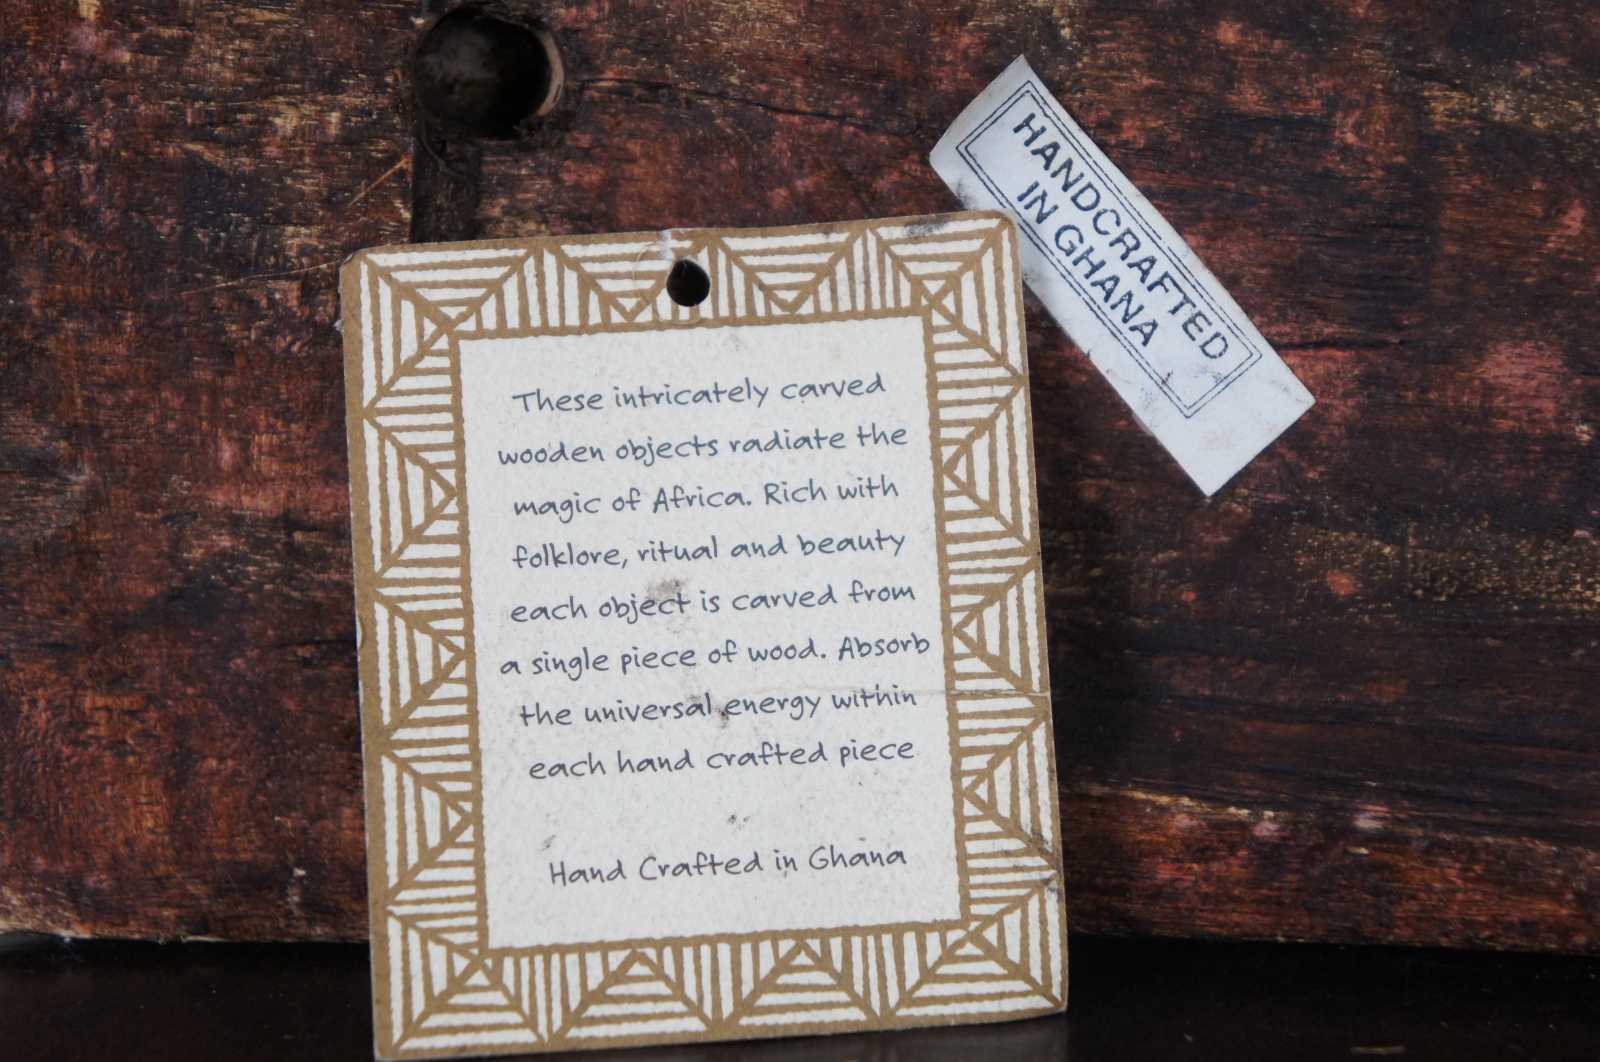 These intricately carved
wooden objects radiate the
magic of Africa. Rich with
folklore, ritual and beauty
each object is carved from
a single piece of wood. Absorb
the universal energy within
each hand crafted piece
Hand Crafted in Ghana
HANDCRAFTED
IN GHANA